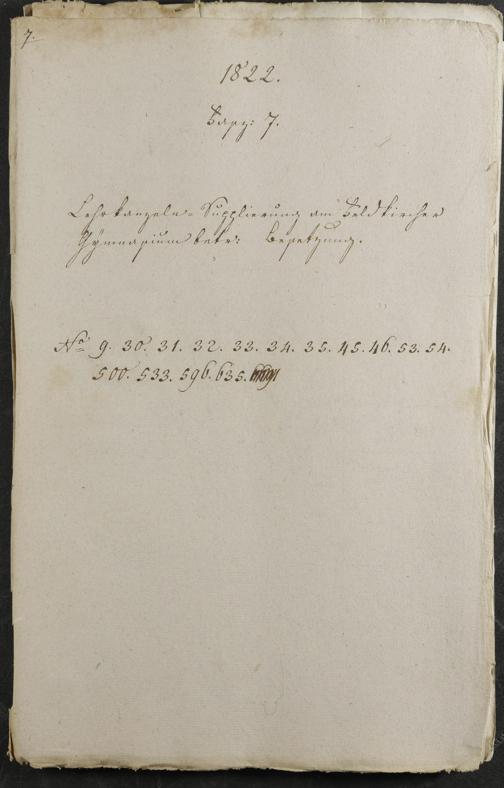 7.
1822.
Fasz: 7.
Lehrkanzeln-Supplierung am Feldkircher
Gÿmnasium betr: Besetzung.
No 9. 30. 31. 32. 33. 34. 35. 45. 46. 53. 54.
500. 533. 596. 635.